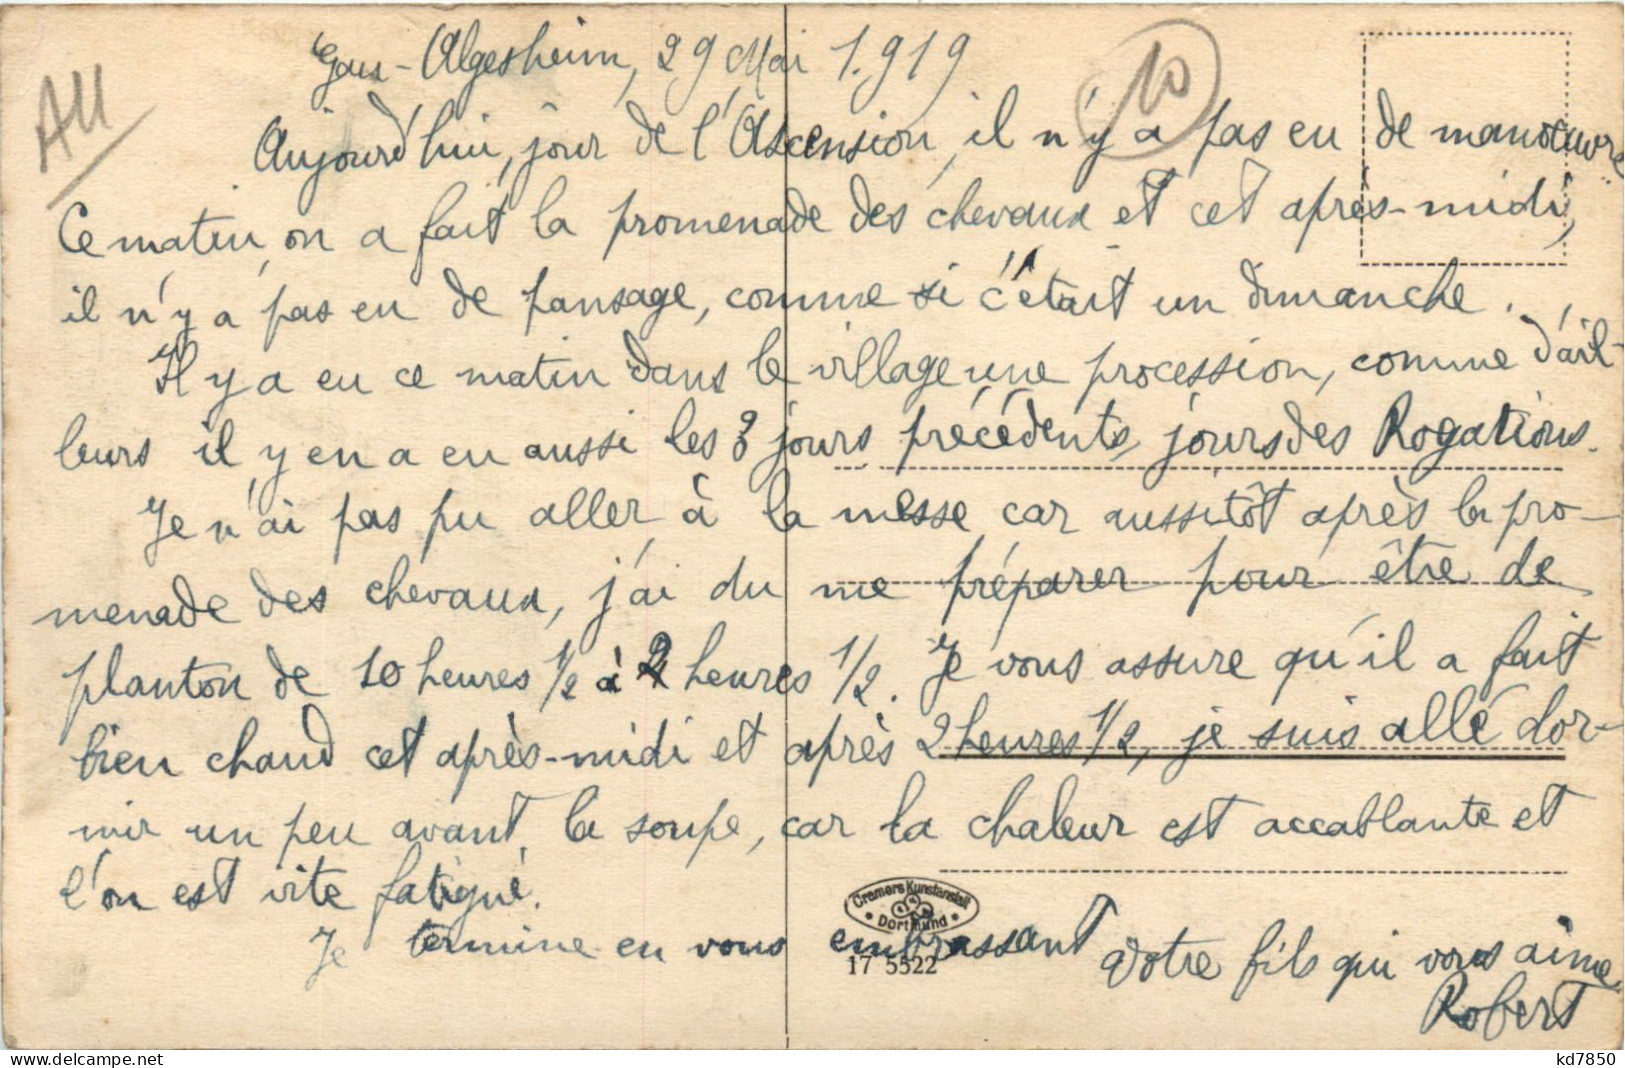 Gau-Algesheim, 29 Mai 1.919
10
All
Aujourd'hui, jour de l'Ascension, il n'y a pas eu de manœuvre
Ce matin, on a fait la promenade des chevaux et cet après-midi,
il n'y a pas eu de pansage, comme si c'était un dimanche.
Il y a eu ce matin dans le village une procession, comme d'ail-
leurs il y en a eu aussi les 3 jours précédents, jours des Rogations.
Je n'ai pas pu aller à la messe car aussitôt après la pro-
menade des chevaux, j'ai du me préparer pour être de
planton de 10 heures 1/2 à 2 heures 1/2. Je vous assure qu'il a fait
bien chaud cet après-midi et après 2 heures 1/2, je suis allé dor-
mir un peu avant la soupe, car la chaleur est accablante et
l'on est vite fatigué.
Je termine en vous embrassant
Votre fils qui vous aime
Robert
Cramers Kunstanstalt
Dortmund
17 5522
kd7850